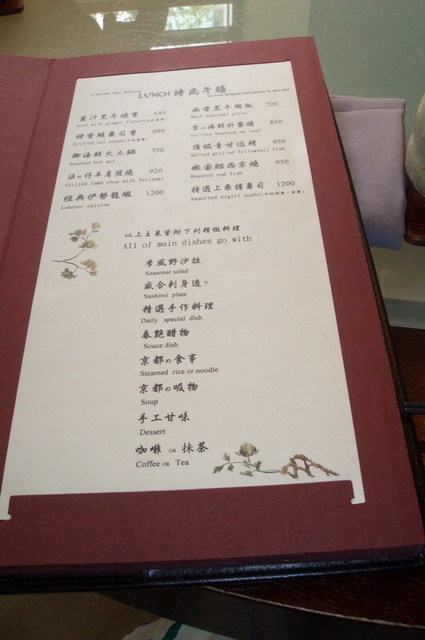 LUNCH 時尚午膳
薑汁黑牛燒重 680
Beef with ginger flavor
烤香鰻壽司重 680
Grilled eel sushi
御海鮮火土鍋 750
Seafood hot pot
法の仔羊肩照燒 920
Grilled lamb chop with Teriyaki
經典伊勢龍蝦 1200
Lobster cuisine
壽黑牛 720
Beef sukiyaki pivot
京の海鮮朴葉燒 850
Grilled Seafood on leaf
頂級青甘塩烤 950
Salted grilled Yellowtail fish
嫩圓鱈西京燒 950
Roasted cod fish
特選上乘握壽司 1200
Assorted nigiri sushi
以上主菜皆附下列精緻料理
All of main dishes go with
季風野沙拉
Seasonal salad
盛合刺身造り
Sashimi plate
精選手作料理
Daily special dish
春艷醋物
Souce dish
京都の食事
Steamed rice or noodle
京都の吸物
Soup
手工甘味
Dessert
咖啡 OR 抹茶
Coffee OR Tea